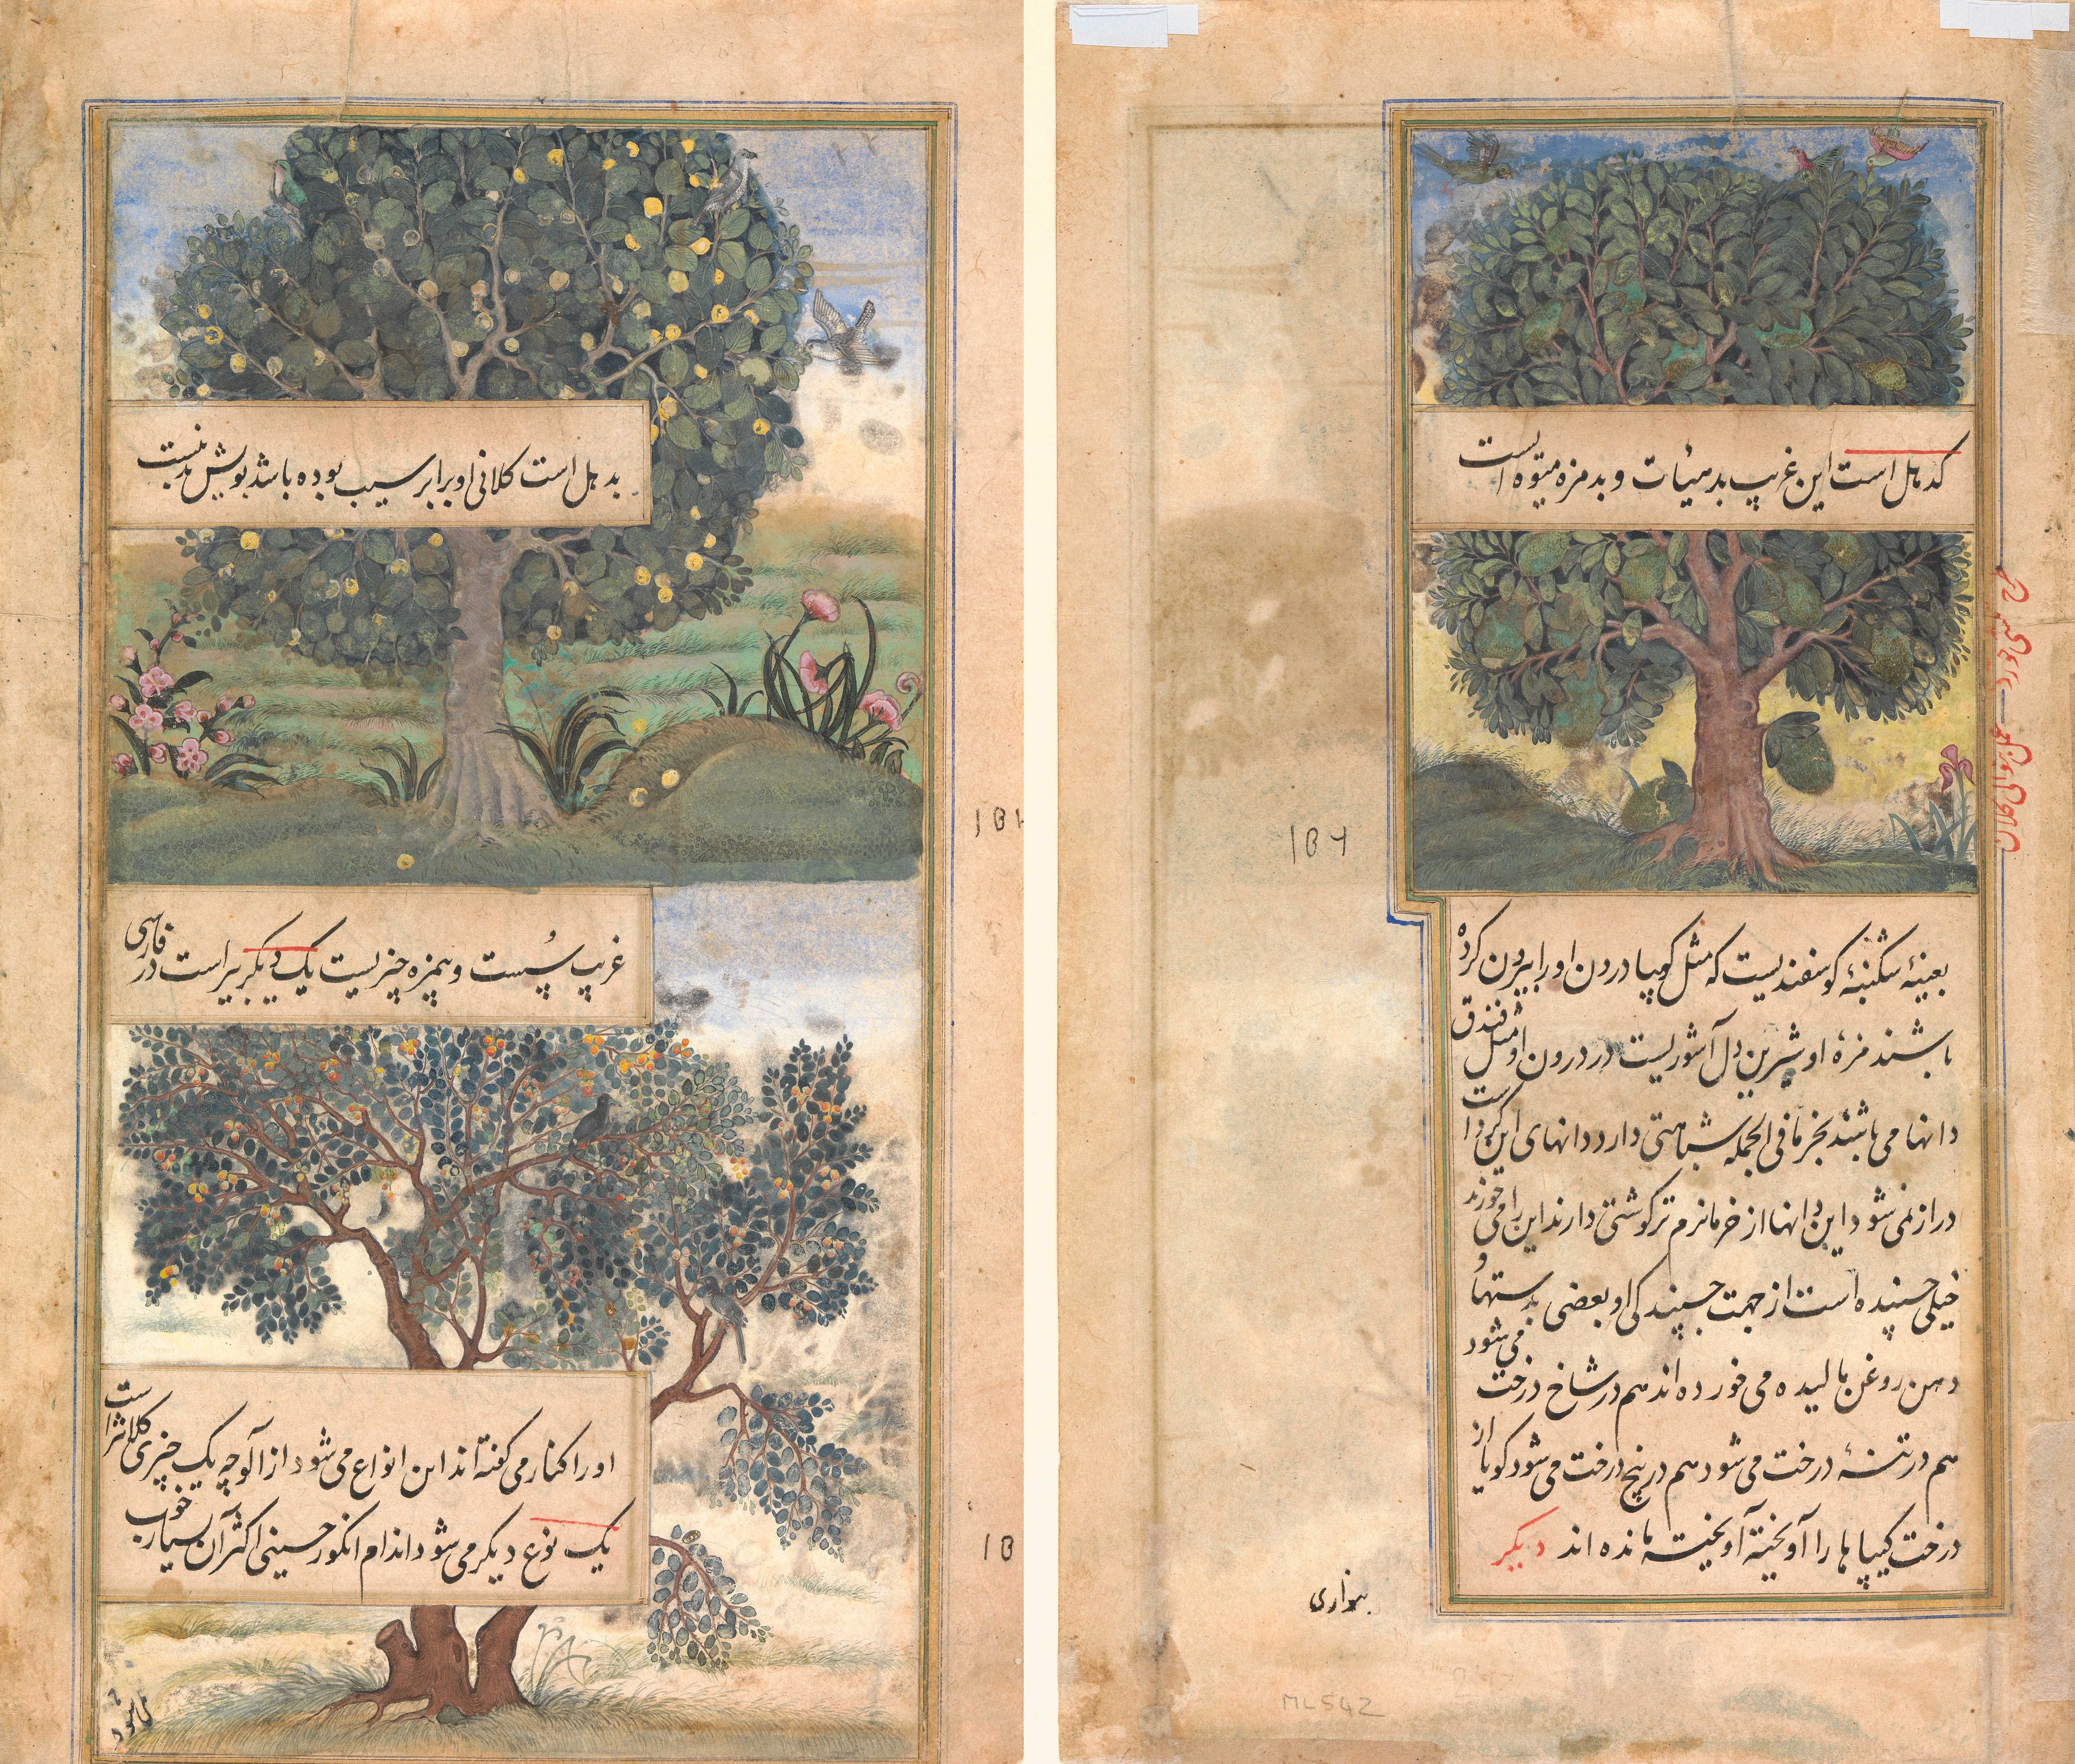 کدهل است این غریب بدهیئات و بدمزه میوه است
بعینهٔ شکنبهٔ کوسفندیست که مثل کیپا درون او را بیرون کرده
باشند مزهٔ او شیرین دل آشوریست در درون او مثل فندق
دانها می باشند بخرما فی الجمله شباهتی دارد دانهای این کرد است
دراز نمی شود این دانها از خرما نرم تر کوشتی دارند این را می خورند
خیلی چسپنده است از جهت چسپندکی او بعضی بدستها و
دهن روغن مالیده می خورده اند هم در شاخ درخت می شود
هم در تنهٔ درخت می شود هم در بیخ درخت می شود کویا از
درخت کیپاها را آویخته آویخته مانده اند دیکر
بنواری
ML542
بدهل است کلانی او برابر سیب بوده باشد بویش بد نیست
غریب پُست و بیمزه چیزیست یک دیکر بیر است در فارسی
او را کنار می کفته اند این انواع می شود از آلوچه یک چیزی کلانتر است
یک نوع دیکر می شود اندام انکور حسینی اکثر آن بسیار خوب